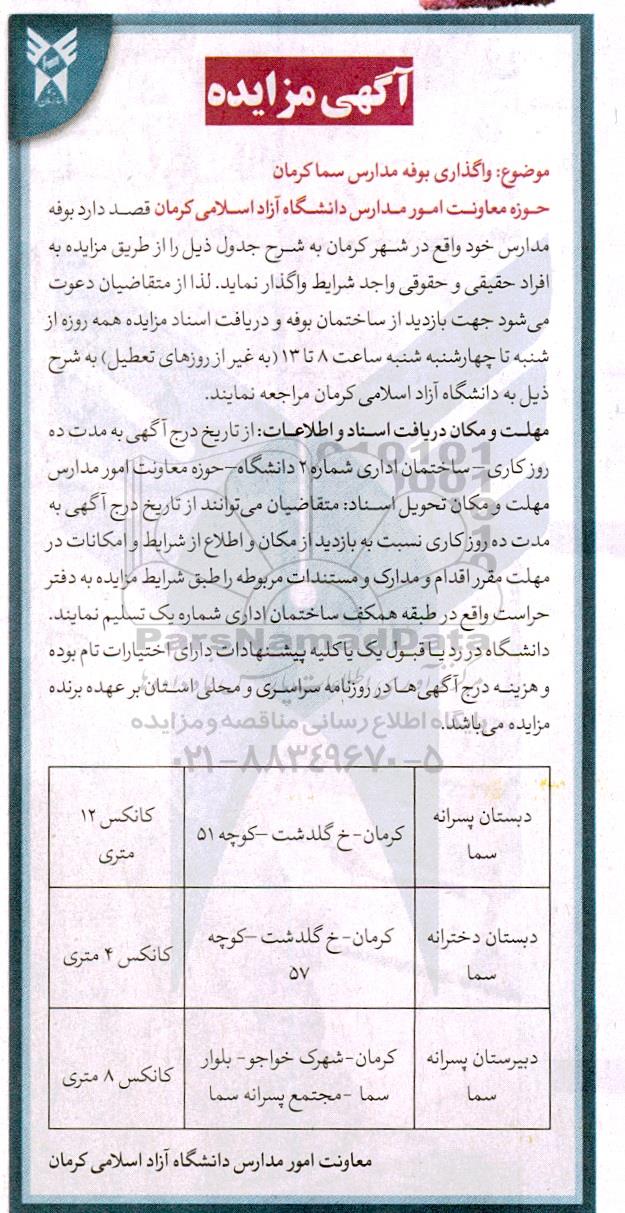 آگهی مزایده
موضوع: واگذاری بوفه مدارس سما کرمان
حوزه معاونت امور مدارس دانشگاه آزاد اسلامی کرمان قصد دارد بوفه
مدارس خود واقع در شهر کرمان به شرح جدول ذیل را از طریق مزایده به
افراد حقیقی و حقوقی واجد شرایط واگذار نماید. لذا از متقاضیان دعوت
می‌شود جهت بازدید از ساختمان بوفه و دریافت اسناد مزایده همه روزه از
شنبه تا چهارشنبه شنبه ساعت ۸ تا ۱۳ (به غیر از روزهای تعطیل) به شرح
ذیل به دانشگاه آزاد اسلامی کرمان مراجعه نمایند.
مهلت و مکان دریافت اسناد و اطلاعات: از تاریخ درج آگهی به مدت ده
روز کاری – ساختمان اداری شماره ۲ دانشگاه–حوزه معاونت امور مدارس
مهلت و مکان تحویل اسناد: متقاضیان می‌توانند از تاریخ درج آگهی به
مدت ده روز کاری نسبت به بازدید از مکان و اطلاع از شرایط و امکانات در
مهلت مقرر اقدام و مدارک و مستندات مربوطه را طبق شرایط مزایده به دفتر
حراست واقع در طبقه همکف ساختمان اداری شماره یک تسلیم نمایند.
دانشگاه در رد یا قبول یک یا کلیه پیشنهادات دارای اختیارات تام بوده
و هزینه درج آگهی‌ها در روزنامه سراسری و محلی استان بر عهده برنده
مزایده می‌باشد.
ParsNamadData
پایگاه اطلاع رسانی مناقصه و مزایده
۰۲۱-۸۸۳۴۹۶۷۰-۵
دبستان پسرانه سما
کرمان-خ گلدشت –کوچه ۵۱
کانکس ۱۲ متری
دبستان دخترانه سما
کرمان-خ گلدشت –کوچه
۵۷
کانکس ۴ متری
دبیرستان پسرانه سما
کرمان-شهرک خواجو- بلوار
سما -مجتمع پسرانه سما
کانکس ۸ متری
معاونت امور مدارس دانشگاه آزاد اسلامی کرمان